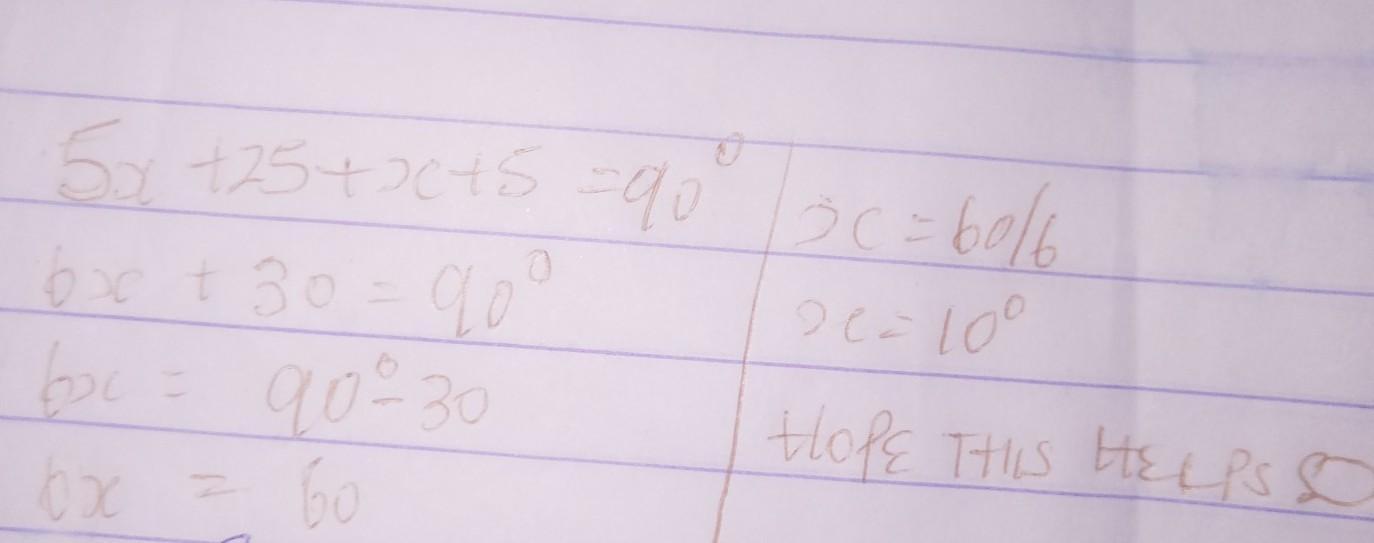 5x + 25 + x + 5 = 90°
6x + 30 = 90°
6x = 90° - 30
6x = 60
x = 60/6
x = 10°
HOPE THIS HELPS